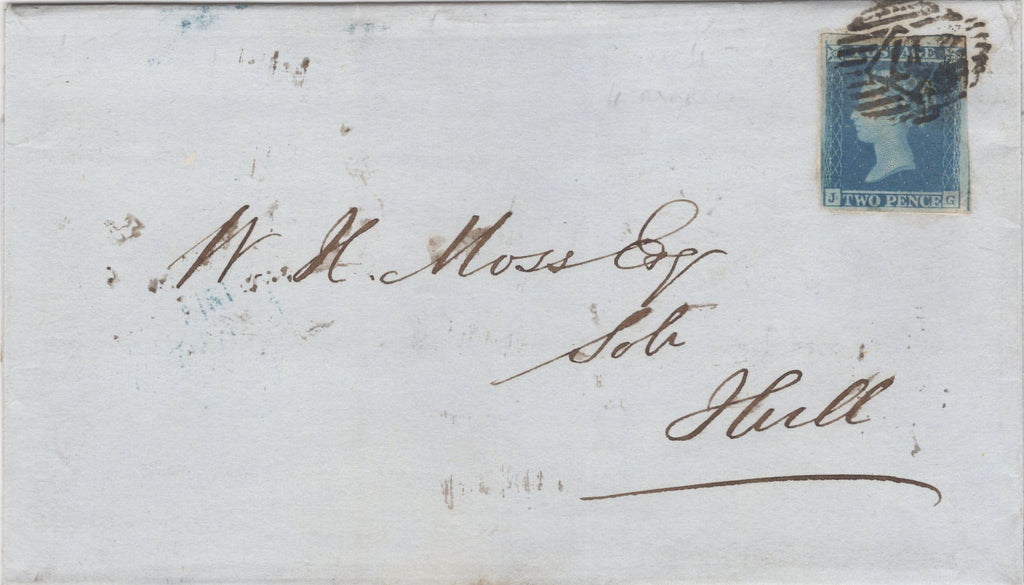 POSTAGE
J TWO PENCE G
W. H. Moss Esq
Solr
Hull